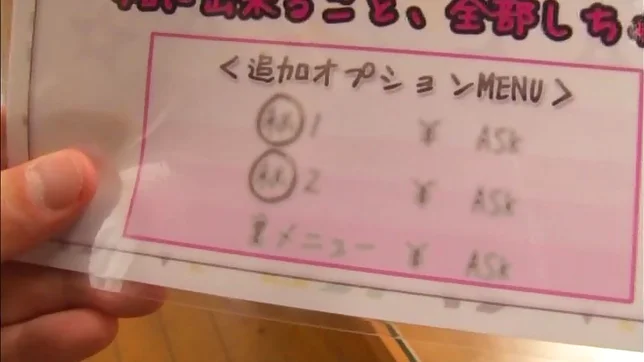 出来ること、全部しちゃ
＜追加オプションMENU＞
㊙1 ¥ ASK
㊙2 ¥ ASK
裏メニュー ¥ ASK